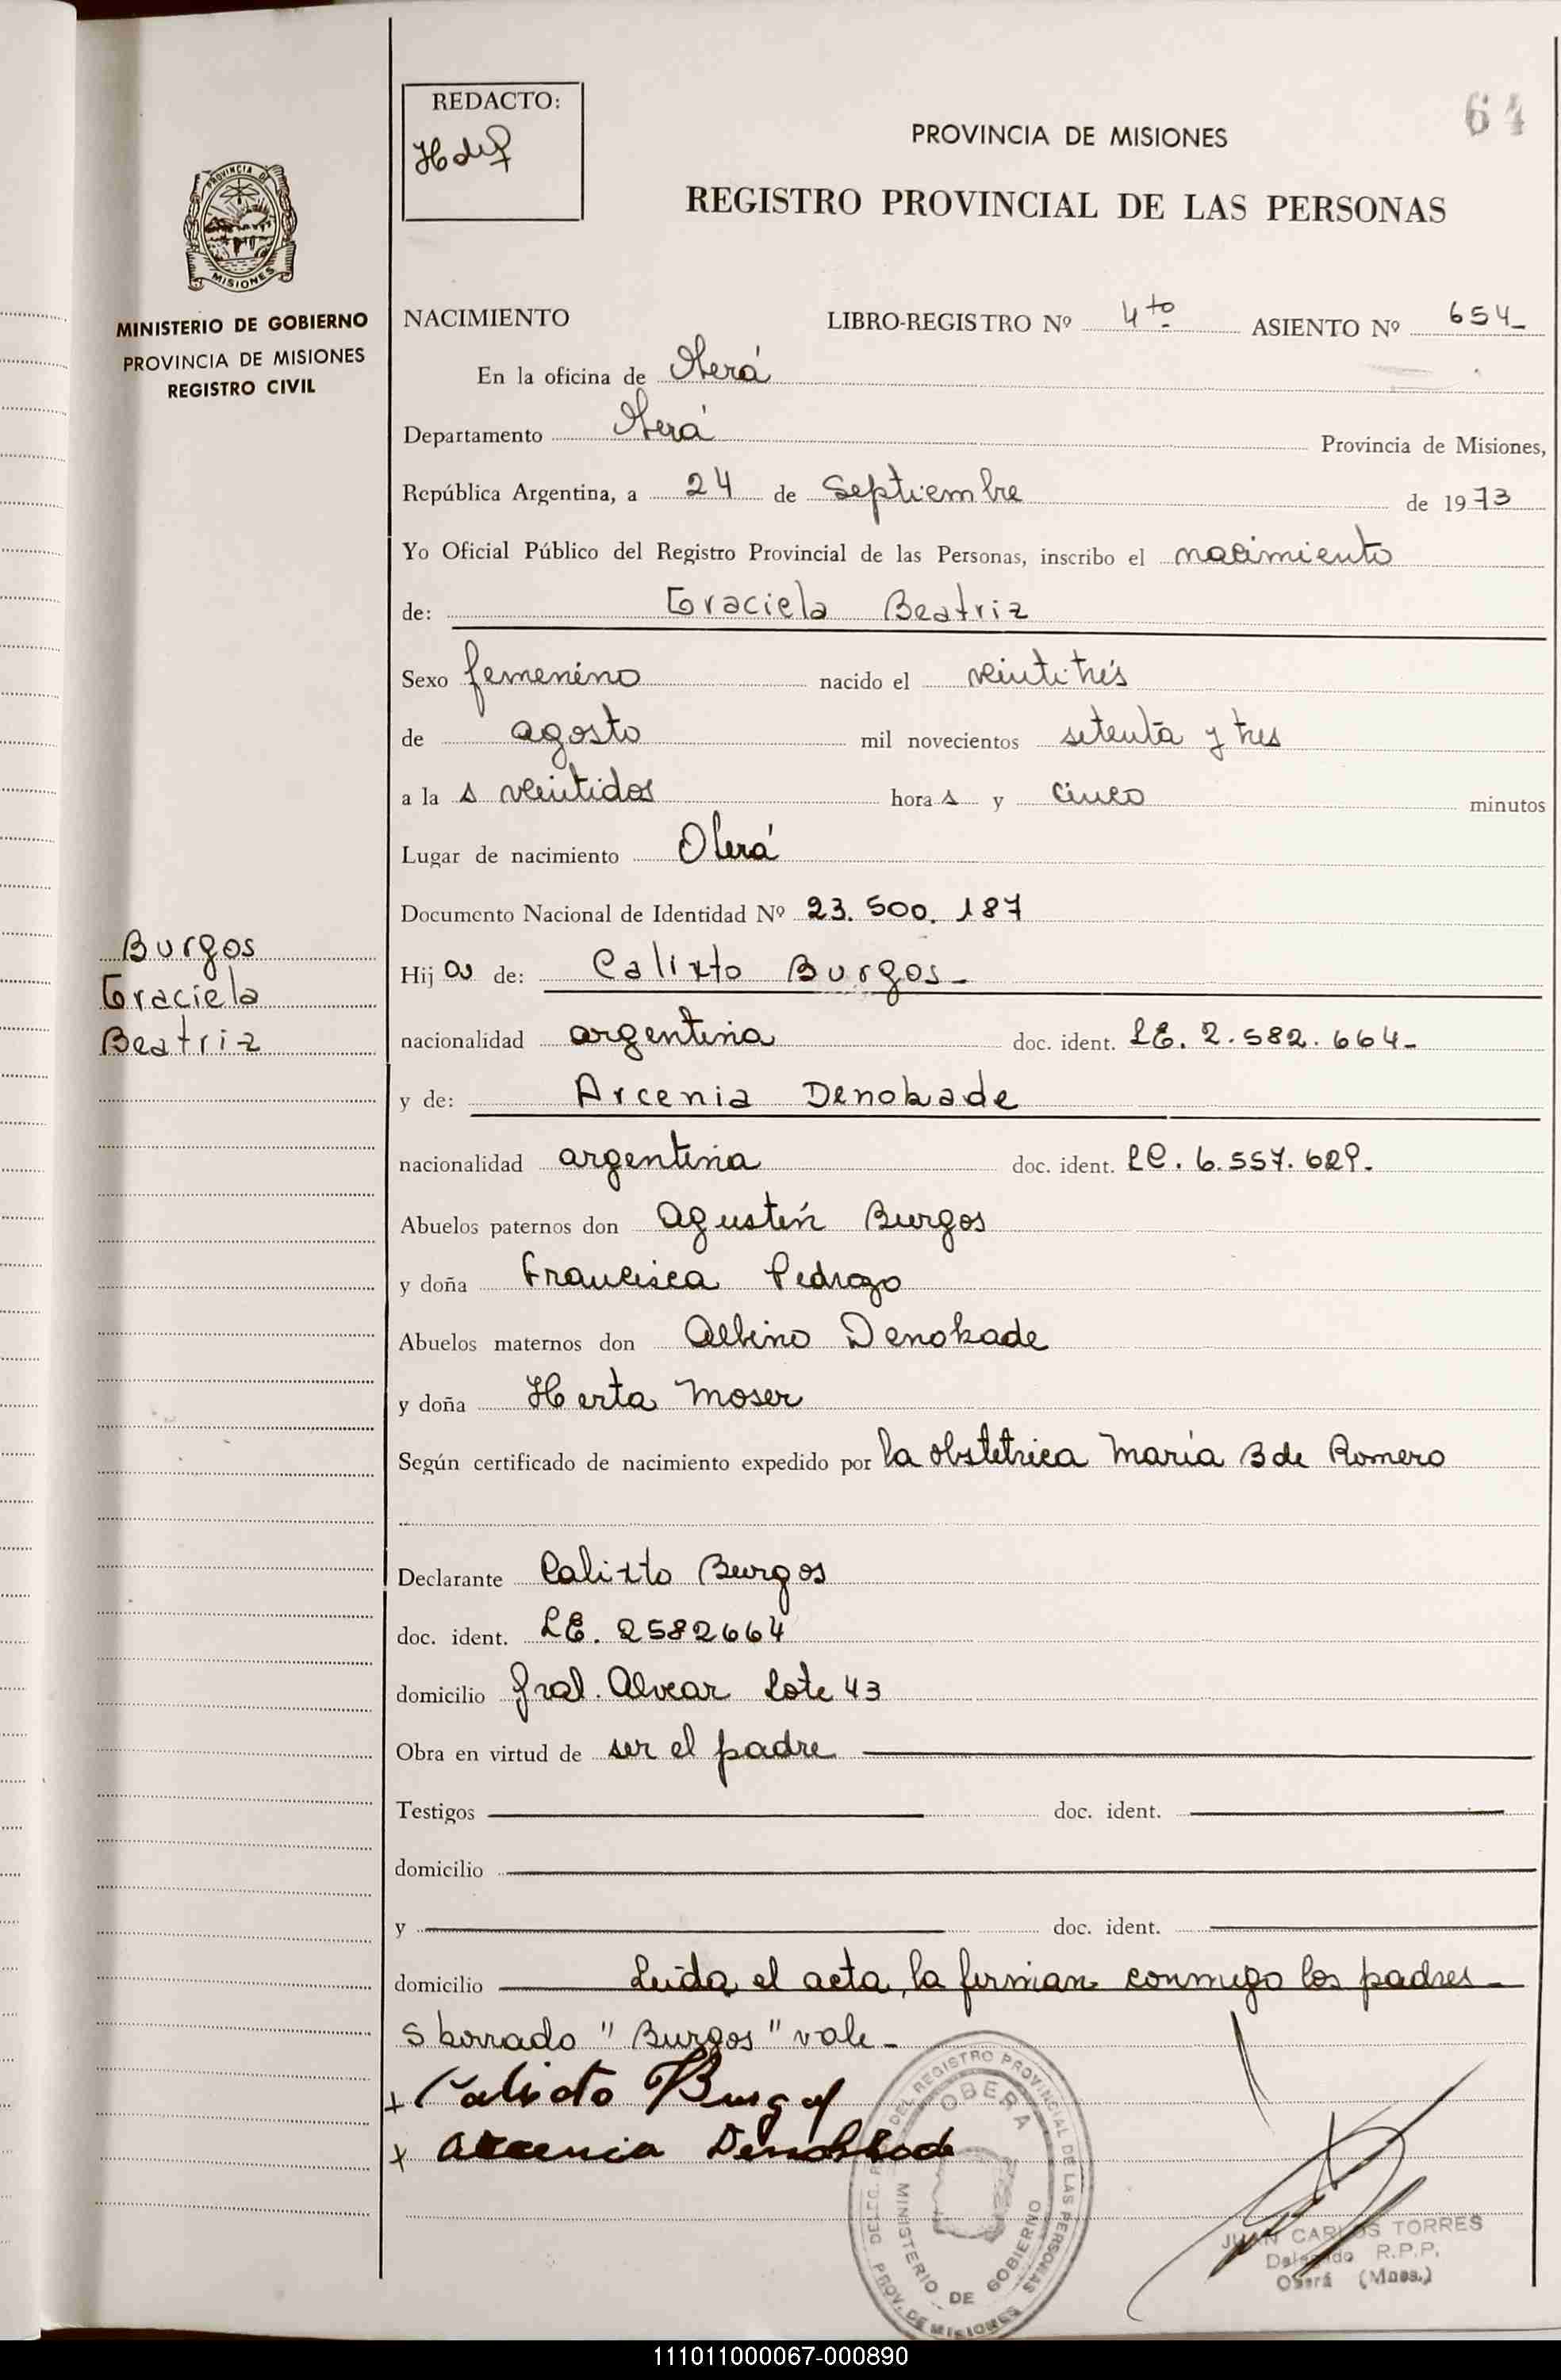 REDACTO:
64
PROVINCIA DE MISIONES
REGISTRO PROVINCIAL DE LAS PERSONAS
PROVINCIA DE
MISIONES
MINISTERIO DE GOBIERNO
PROVINCIA DE MISIONES
REGISTRO CIVIL
NACIMIENTO LIBRO-REGISTRO Nº 4to ASIENTO Nº 654_
En la oficina de Oberá
Departamento Oberá Provincia de Misiones,
República Argentina, a 24 de Septiembre de 1973
Yo Oficial Público del Registro Provincial de las Personas, inscribo el nacimiento
de: Graciela Beatriz
Sexo femenino nacido el veintitrés
de agosto mil novecientos setenta y tres
a la s veintidos hora s y cinco minutos
Lugar de nacimiento Oberá
Documento Nacional de Identidad Nº 23.500.187
Burgos
Graciela
Beatriz
Hij a de: Calixto Burgos_
nacionalidad argentina doc. ident. LE. 2.582.664_
y de: Arcenia Denobade
nacionalidad argentina doc. ident. LC. 6.557.629.
Abuelos paternos don Agustín Burgos
y doña Francisca Pedrozo
Abuelos maternos don Albino Denobade
y doña Herta Moser
Según certificado de nacimiento expedido por la obstétrica María B de Romero
Declarante Calixto Burgos
doc. ident. LE. 2582664
domicilio Gral. Alvear Lote 43
Obra en virtud de ser el padre
Testigos doc. ident.
domicilio
y doc. ident.
domicilio Leída el acta, la firman conmigo los padres_
S borrado "Burgos" vale_
+ Calixto Burgos
+ Arcenia
DELEG. DEL REGISTRO PROVINCIAL DE LAS PERSONAS
OBERA
MINISTERIO DE GOBIERNO
PROV. DE MISIONES
JUAN CARLOS TORRES
Delegado R.P.P.
Oberá (Mnes.)
111011000067-000890